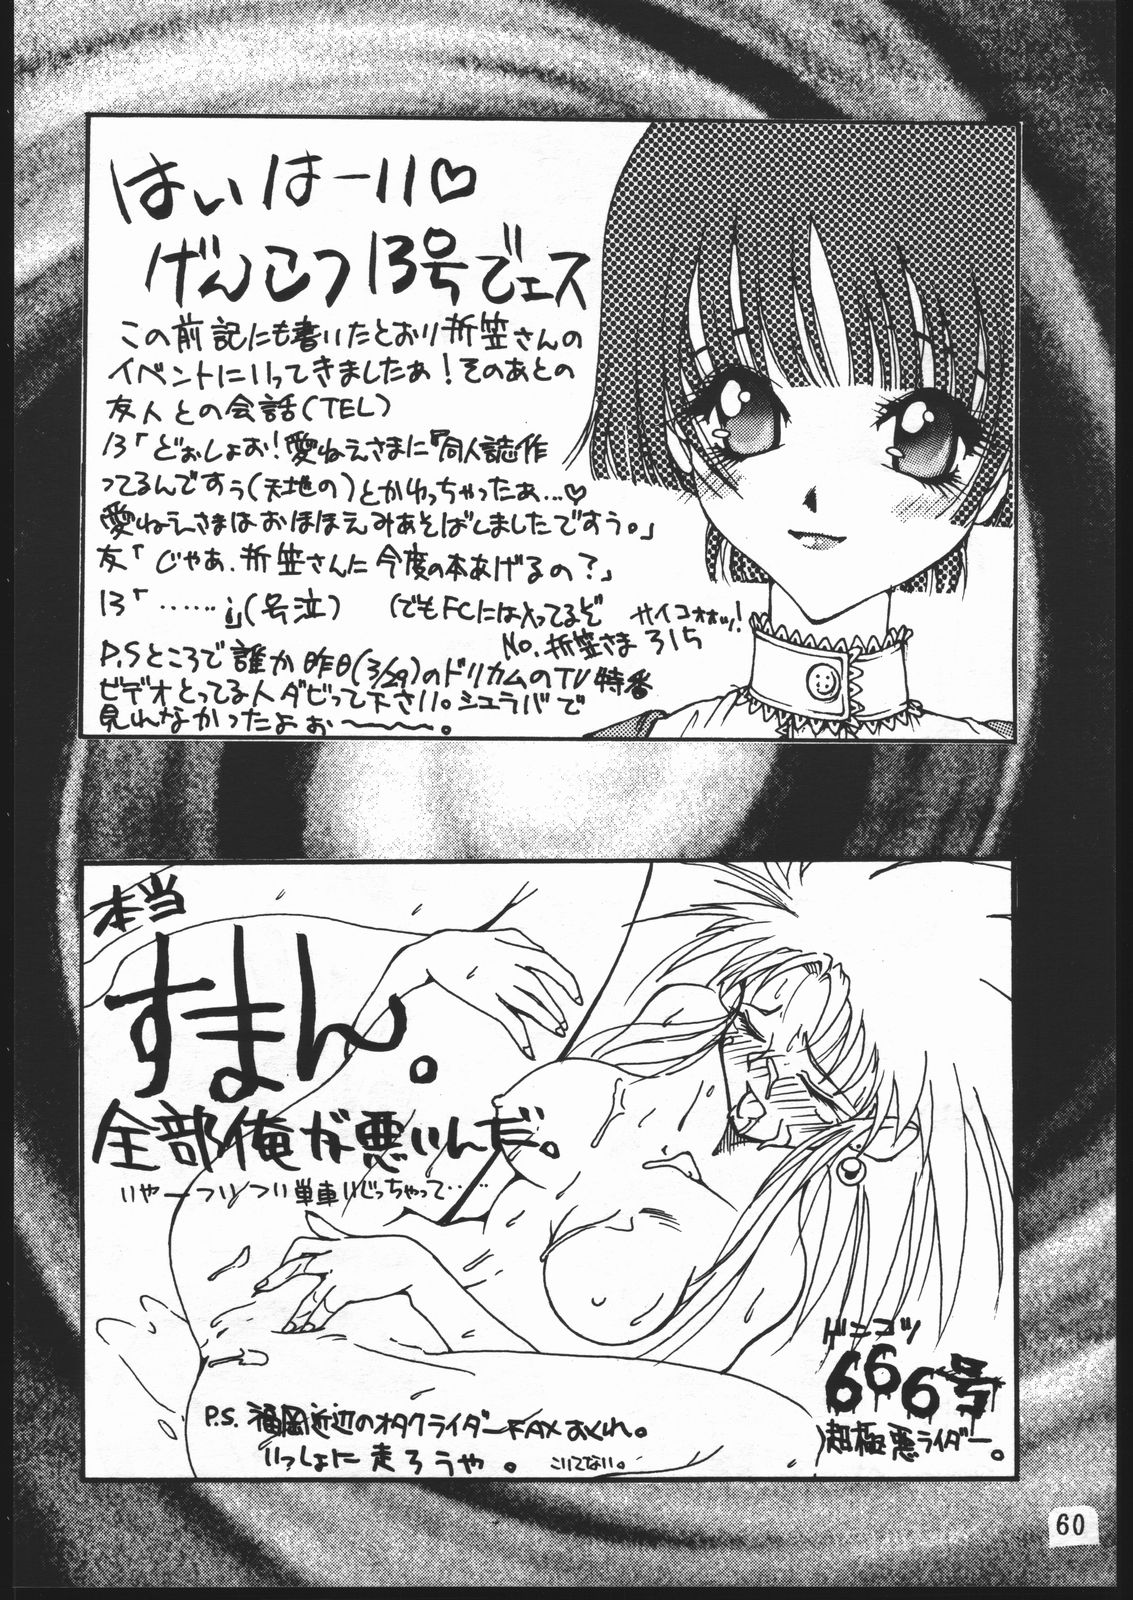 はいはーいい♡
げんこつ13号でェス
この前記にも書いたとおり折笠さんの
イベントにいってきましたぁ！そのあとの
友人との会話(TEL)
13「どぉしょお！愛ねえさまに『同人誌作
ってるんですぅ(天地の)とかゆっちゃったぁ…♡
愛ねえさまはおほほえみあそばしましたですぅ。」
友「じゃあ、折笠さんに今度の本あげるの？」
13「……i」(号泣)
(でもFCには入ってるぞ
No.折笠さま315
サイコォォッ！
P.Sところで誰か昨日(3/29)のドリカムのTV特番
ビデオとってる人ダビって下さい。シュラバで
見れなかったよぉ〜〜。
本当
すまん。
全部俺が悪いんだ。
いやーついつい単車いじっちゃって……
ゲンコツ
666号
超極悪ライダー。
P.S. 福岡近辺のオタクライダーFAXおくれ。
いっしょに走ろうや。
こいてない。
60